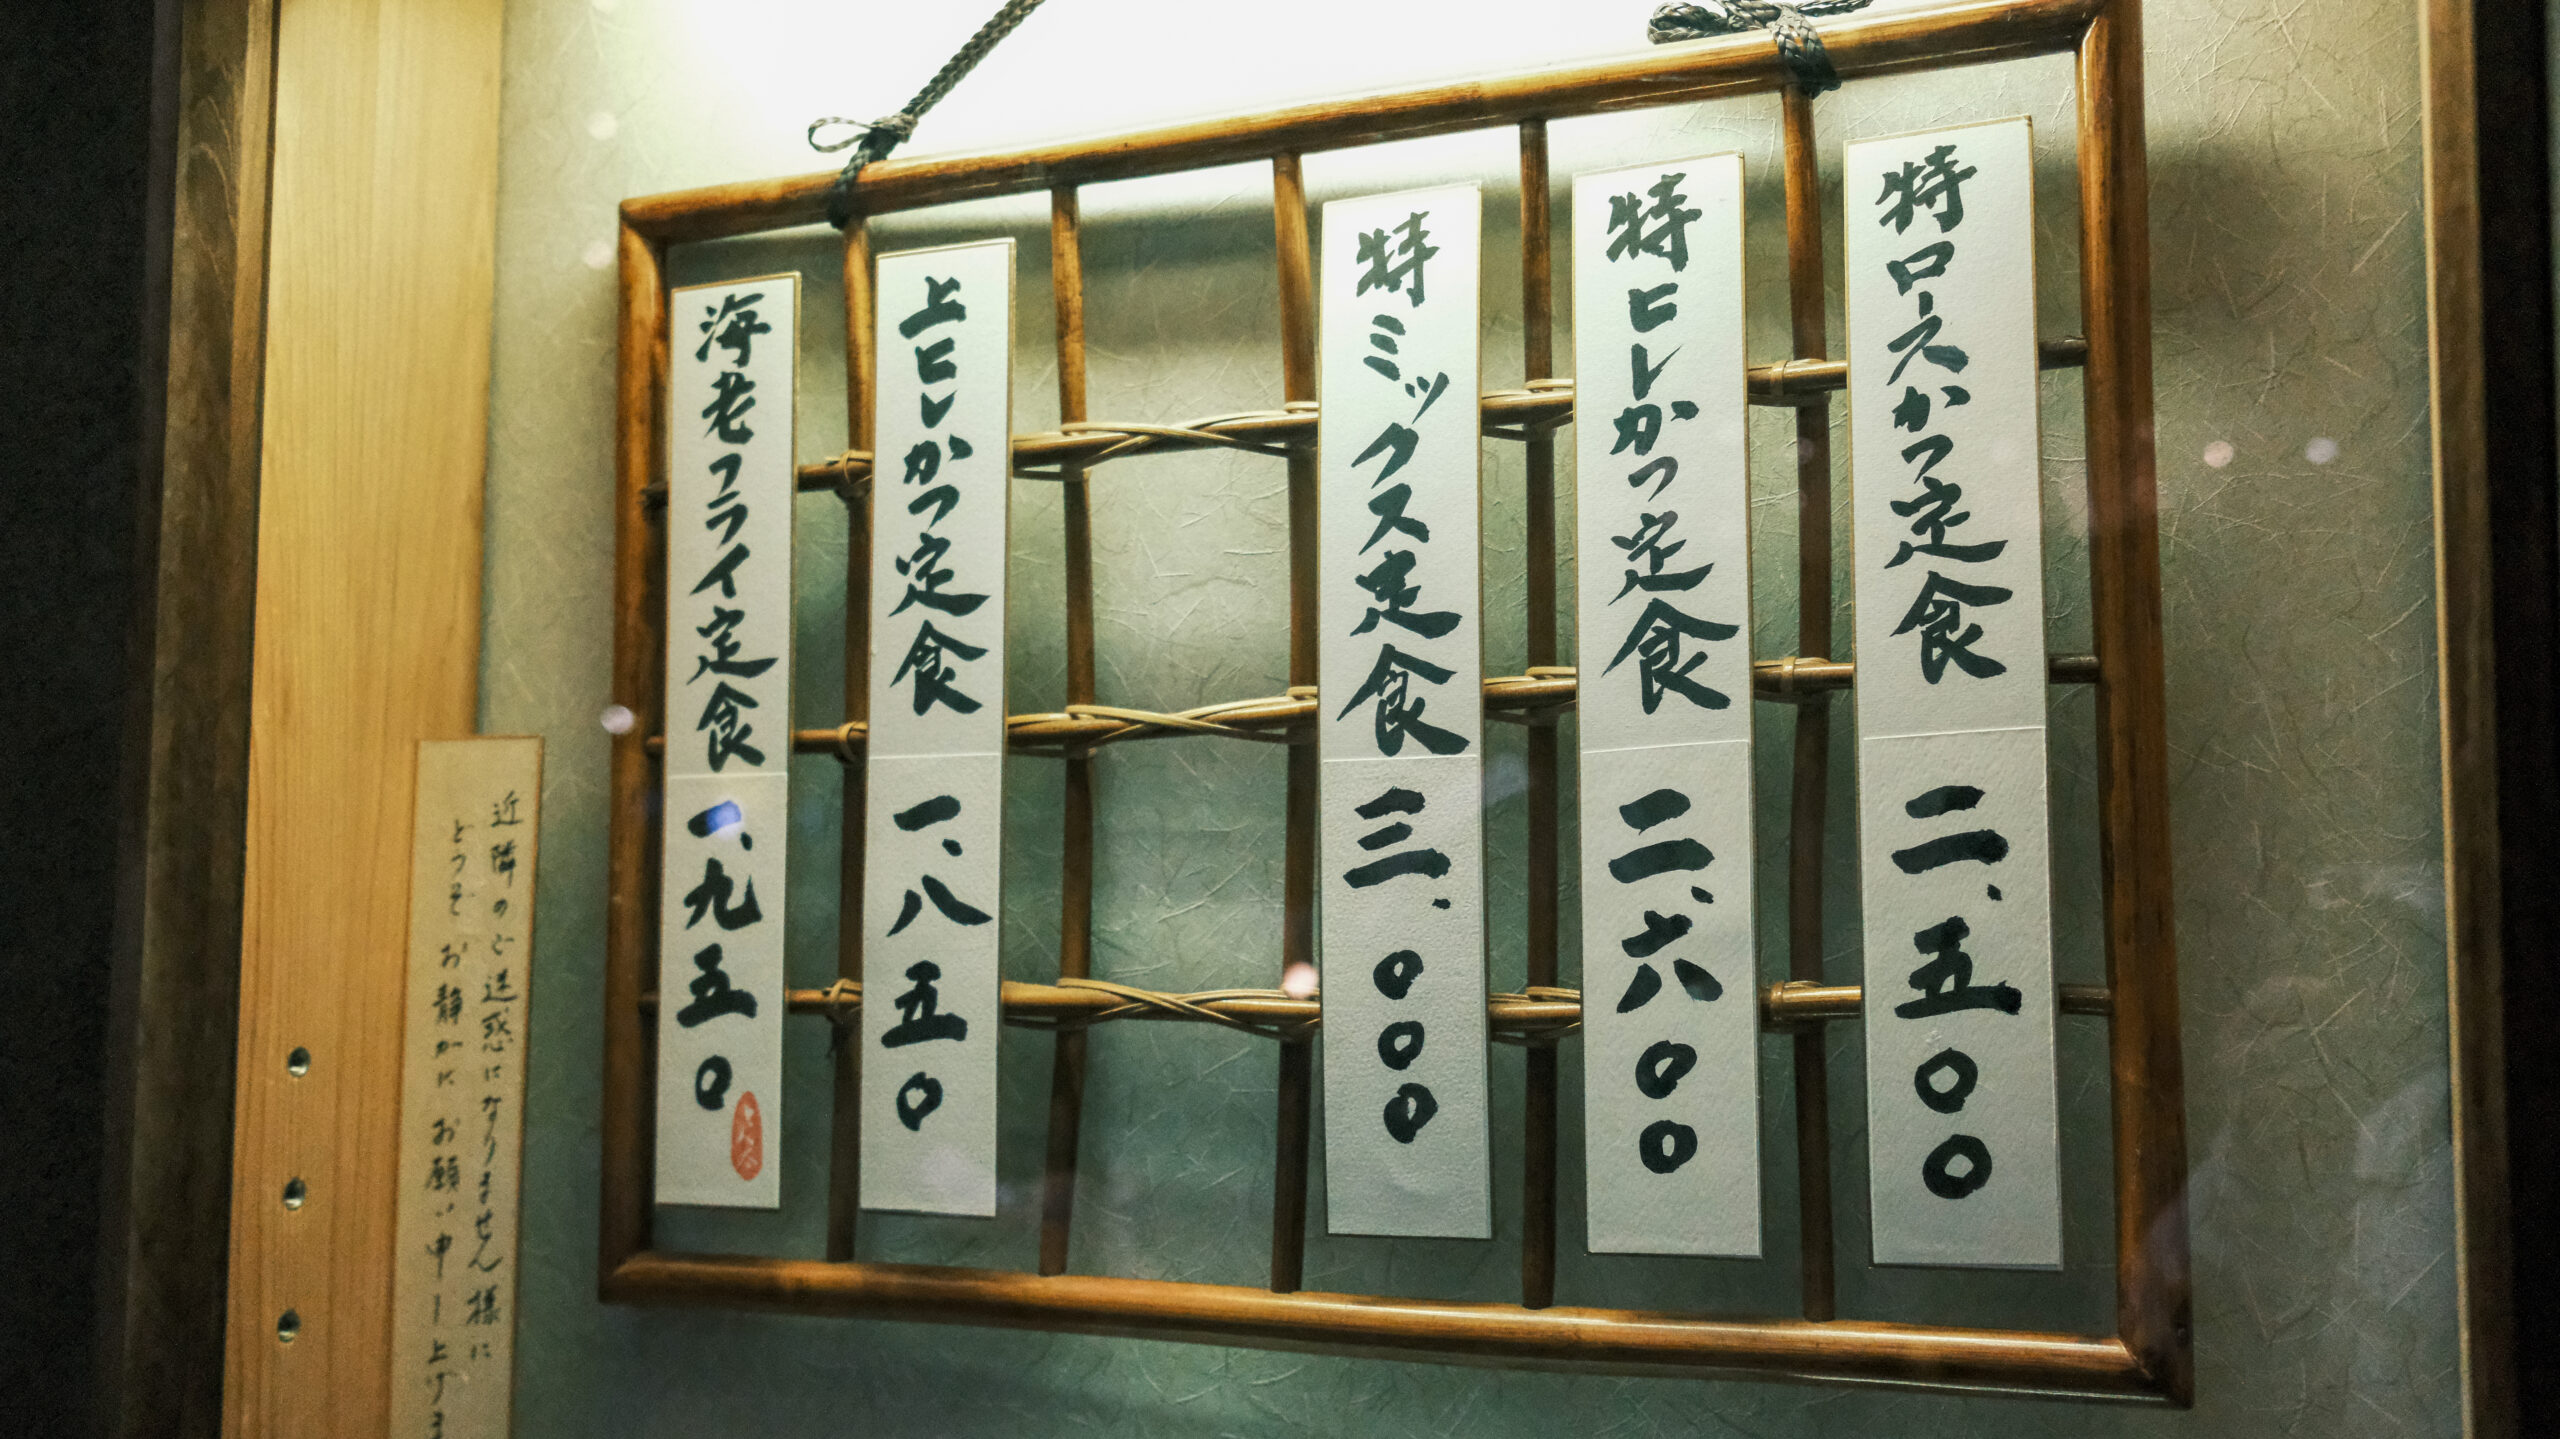 特ロースかつ定食 二、五〇〇
特ヒレかつ定食 二、六〇〇
特ミックス定食 三、〇〇〇
上ヒレかつ定食 一、八五〇
海老フライ定食 一、九五〇
近隣のご迷惑になりません様に
どうぞお静かにお願い申し上げま